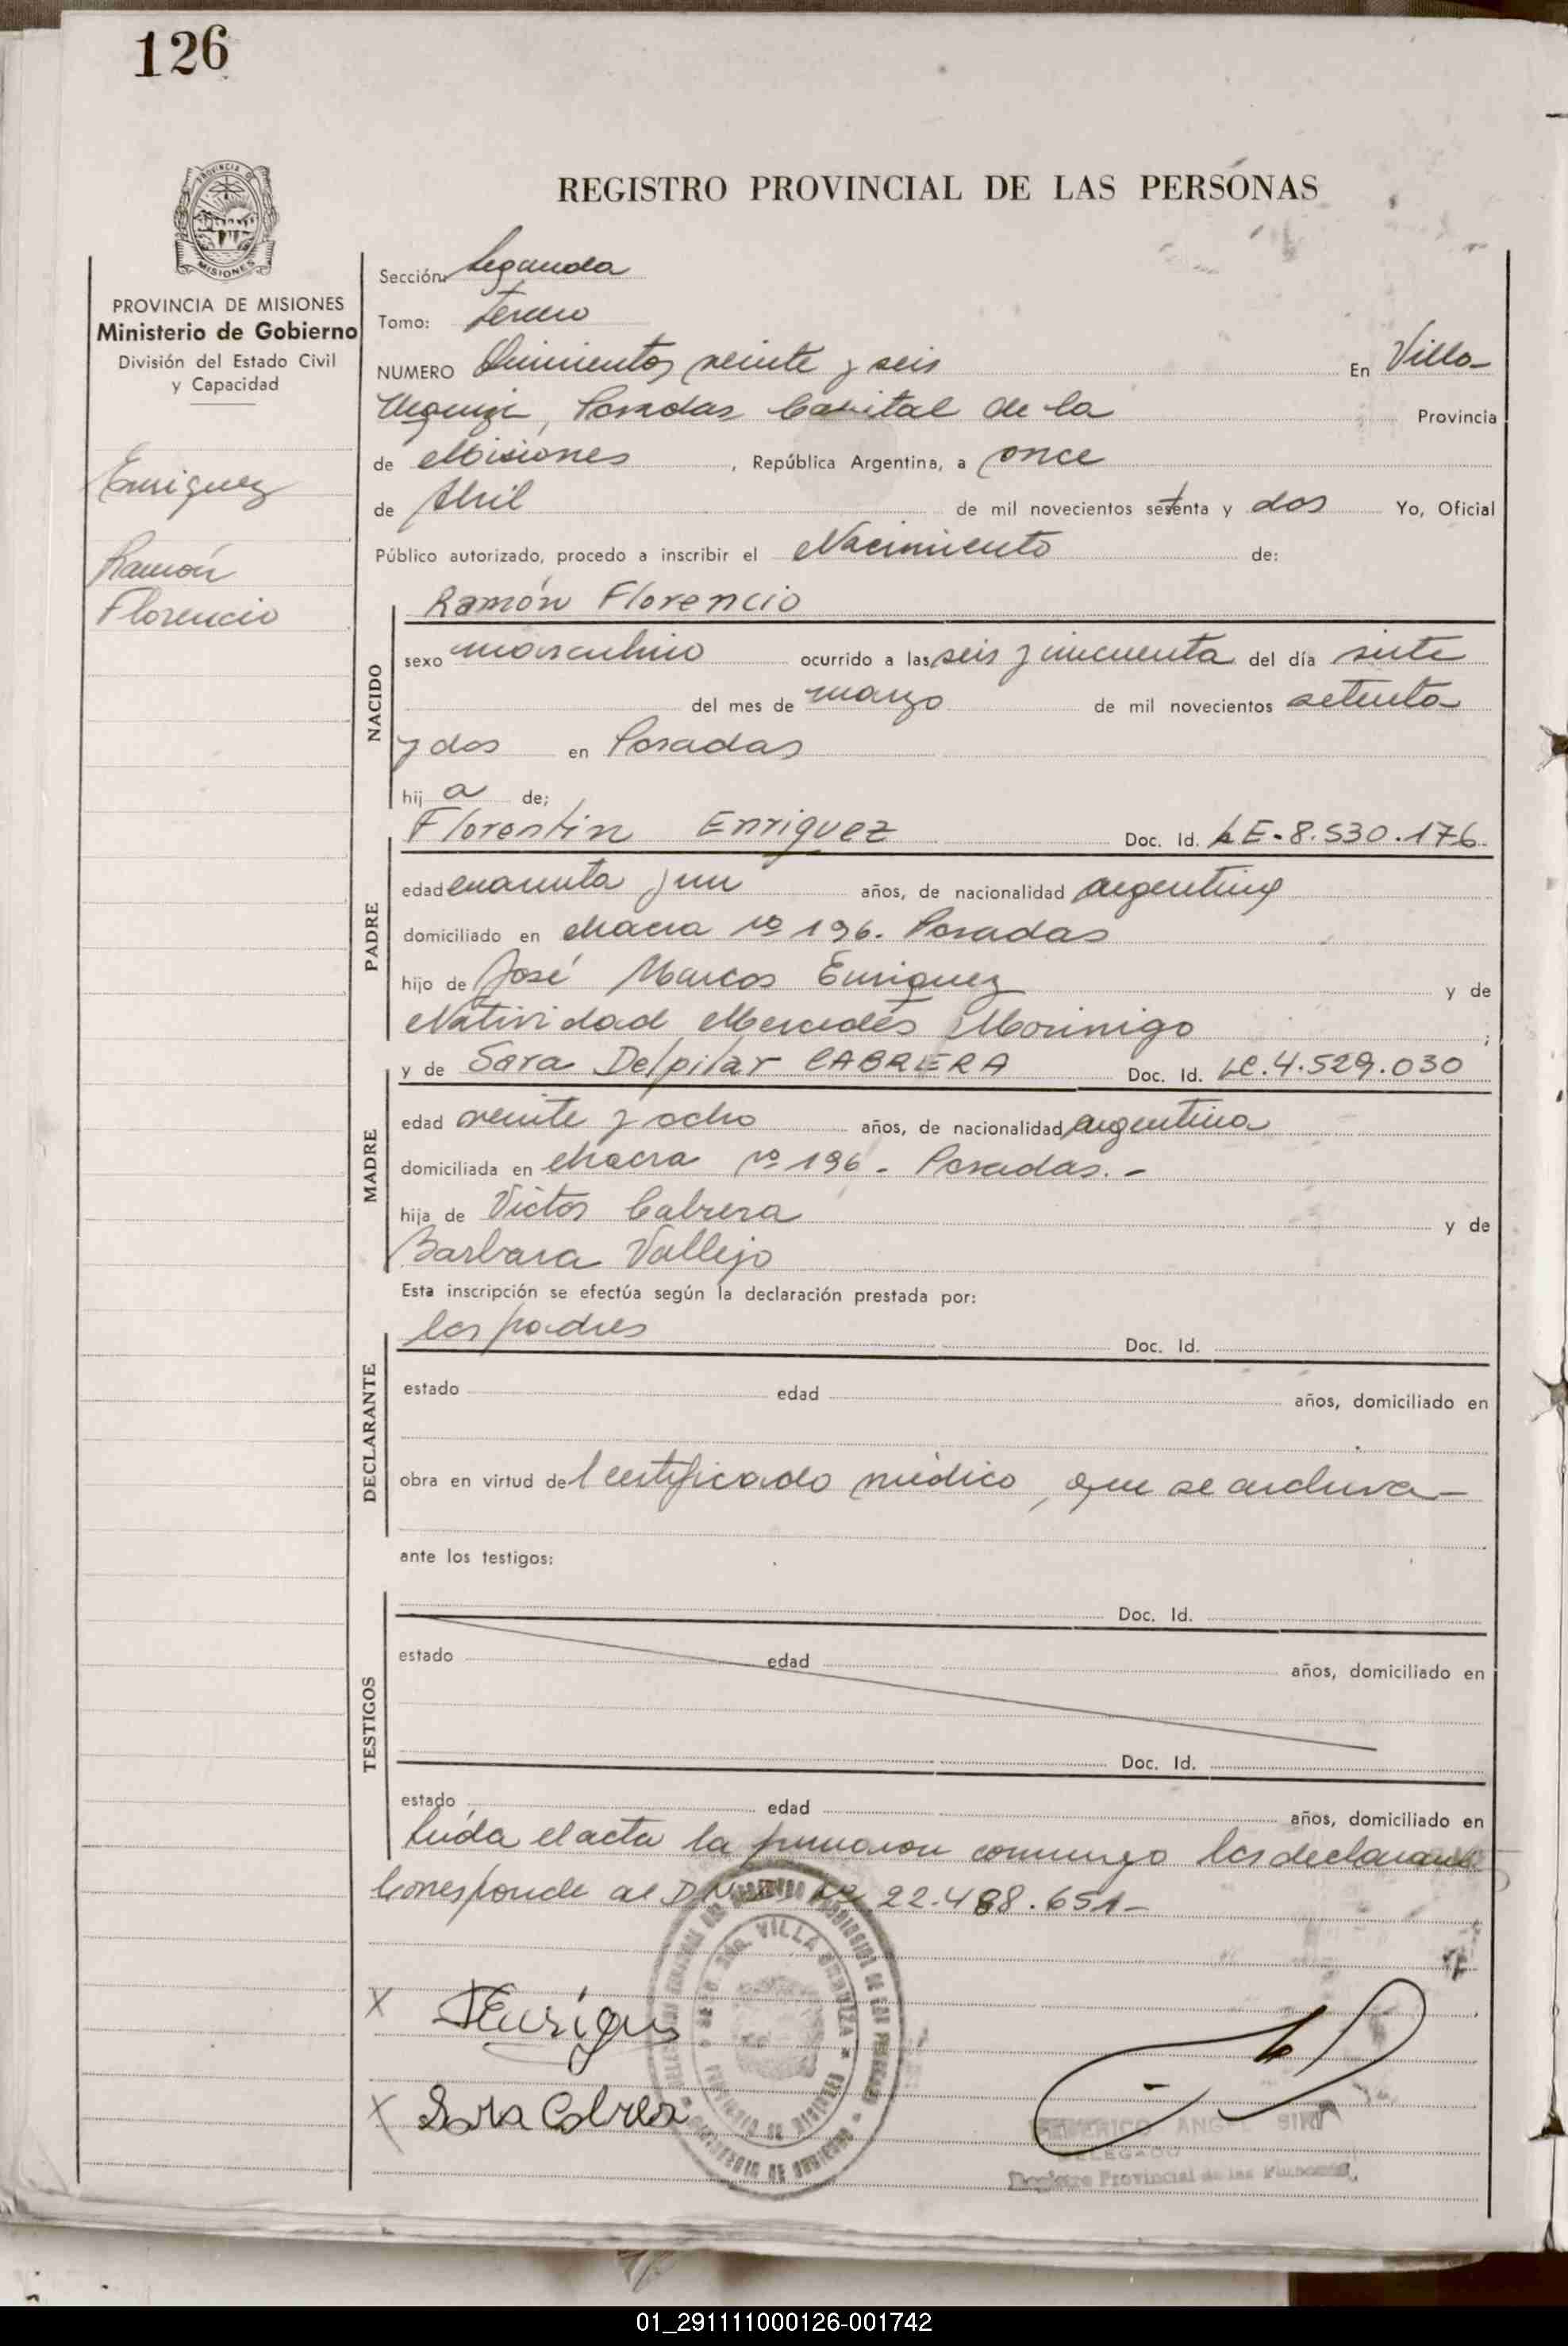 126
PROVINCIA DE
MISIONES
PROVINCIA DE MISIONES
Ministerio de Gobierno
División del Estado Civil
y Capacidad
Enriquez
Ramón
Florencio
REGISTRO PROVINCIAL DE LAS PERSONAS
Sección: Segunda
Tomo: tercero
NUMERO Quinientos veinte y seis En Villa
Urquiza, Posadas Capital de la Provincia
de Misiones, República Argentina, a once
de Abril de mil novecientos setenta y dos Yo, Oficial
Público autorizado, procedo a inscribir el Nacimiento de:
NACIDO
Ramón Florencio
sexo masculino ocurrido a las seis y cincuenta del día siete
del mes de marzo de mil novecientos setenta
y dos en Posadas
hij a de;
PADRE
Florentin Enriquez Doc. Id. LE-8.530.176
edad cuarenta y un años, de nacionalidad argentina
domiciliado en chacra nº 196. Posadas
hijo de José Marcos Enriquez y de
Natividad Mercedes Morinigo;
MADRE
y de Sara Delpilar CABRERA Doc. Id. LC.4.529.030
edad veinte y ocho años, de nacionalidad argentina
domiciliada en chacra nº 196 - Posadas.-
hija de Victor Cabrera y de
Barbara Vallejo
Esta inscripción se efectúa según la declaración prestada por:
DECLARANTE
los padres Doc. Id.
estado edad años, domiciliado en
obra en virtud del certificado médico, que se archiva-
ante los testigos:
TESTIGOS
Doc. Id.
estado edad años, domiciliado en
Doc. Id.
estado edad años, domiciliado en
Leída el acta la firmaron conmigo los declarantes
Corresponde al Nº 22.488.651-
VILLA URQUIZA
X Enriquez
X Sara Cabrera
FEDERICO ANGEL
DELEGADO
Registro Provincial de las Personas
01_291111000126-001742